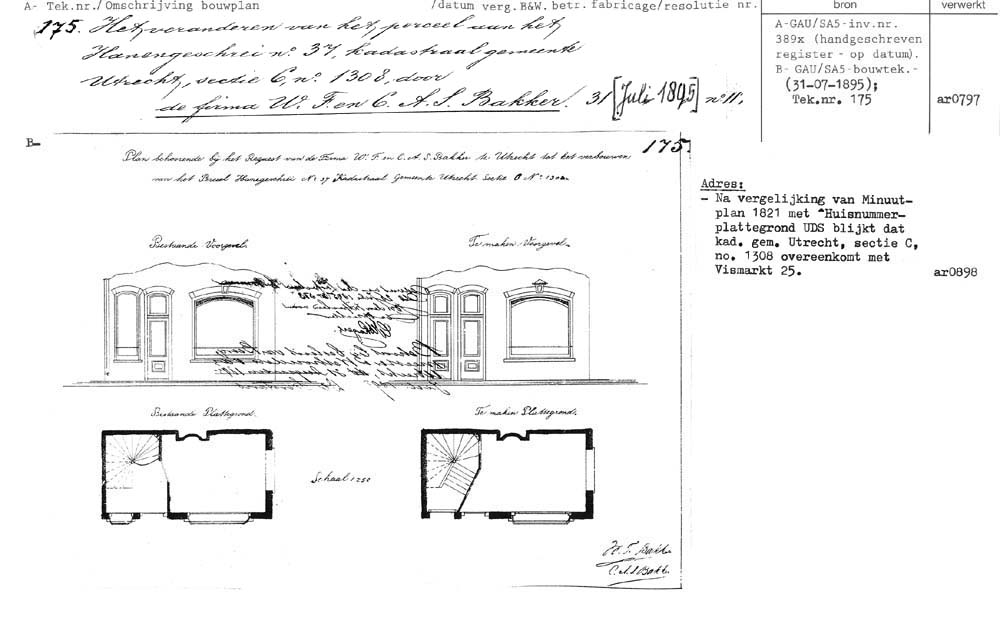 A- Tek.nr./Omschrijving bouwplan /datum verg.B&W. betr. fabricage/resolutie nr. bron verwerkt
175. Het veranderen van het perceel aan het
Hanengeschrei no 37, kadastraal gemeente
Utrecht, sectie C, no. 1308, door
de firma W. F. en C. A. S. Bakker. 31 [Juli 1895] no 11.
A-GAU/SA5-inv.nr.
389x (handgeschreven
register - op datum).
B- GAU/SA5-bouwtek.-
(31-07-1895);
Tek.nr. 175 ar0797
B-
175.
Plan behoorende bij het Request van de Firma W. F. en C. A. S. Bakker te Utrecht tot het verbouwen
van het Perceel Hanengeschrei No 37 Kadastraal Gemeente Utrecht Sectie C No 1308.
Adres:
- Na vergelijking van Minuut-
plan 1821 met "Huisnummer-
plattegrond UDS blijkt dat
kad. gem. Utrecht, sectie C,
no. 1308 overeenkomt met
Vismarkt 25. ar0898
Bestaande Voorgevel.
Te maken Voorgevel.
Bestaande Plattegrond.
Te maken Plattegrond.
Schaal 1:50
W. F. Bakker
C. A. S. Bakker